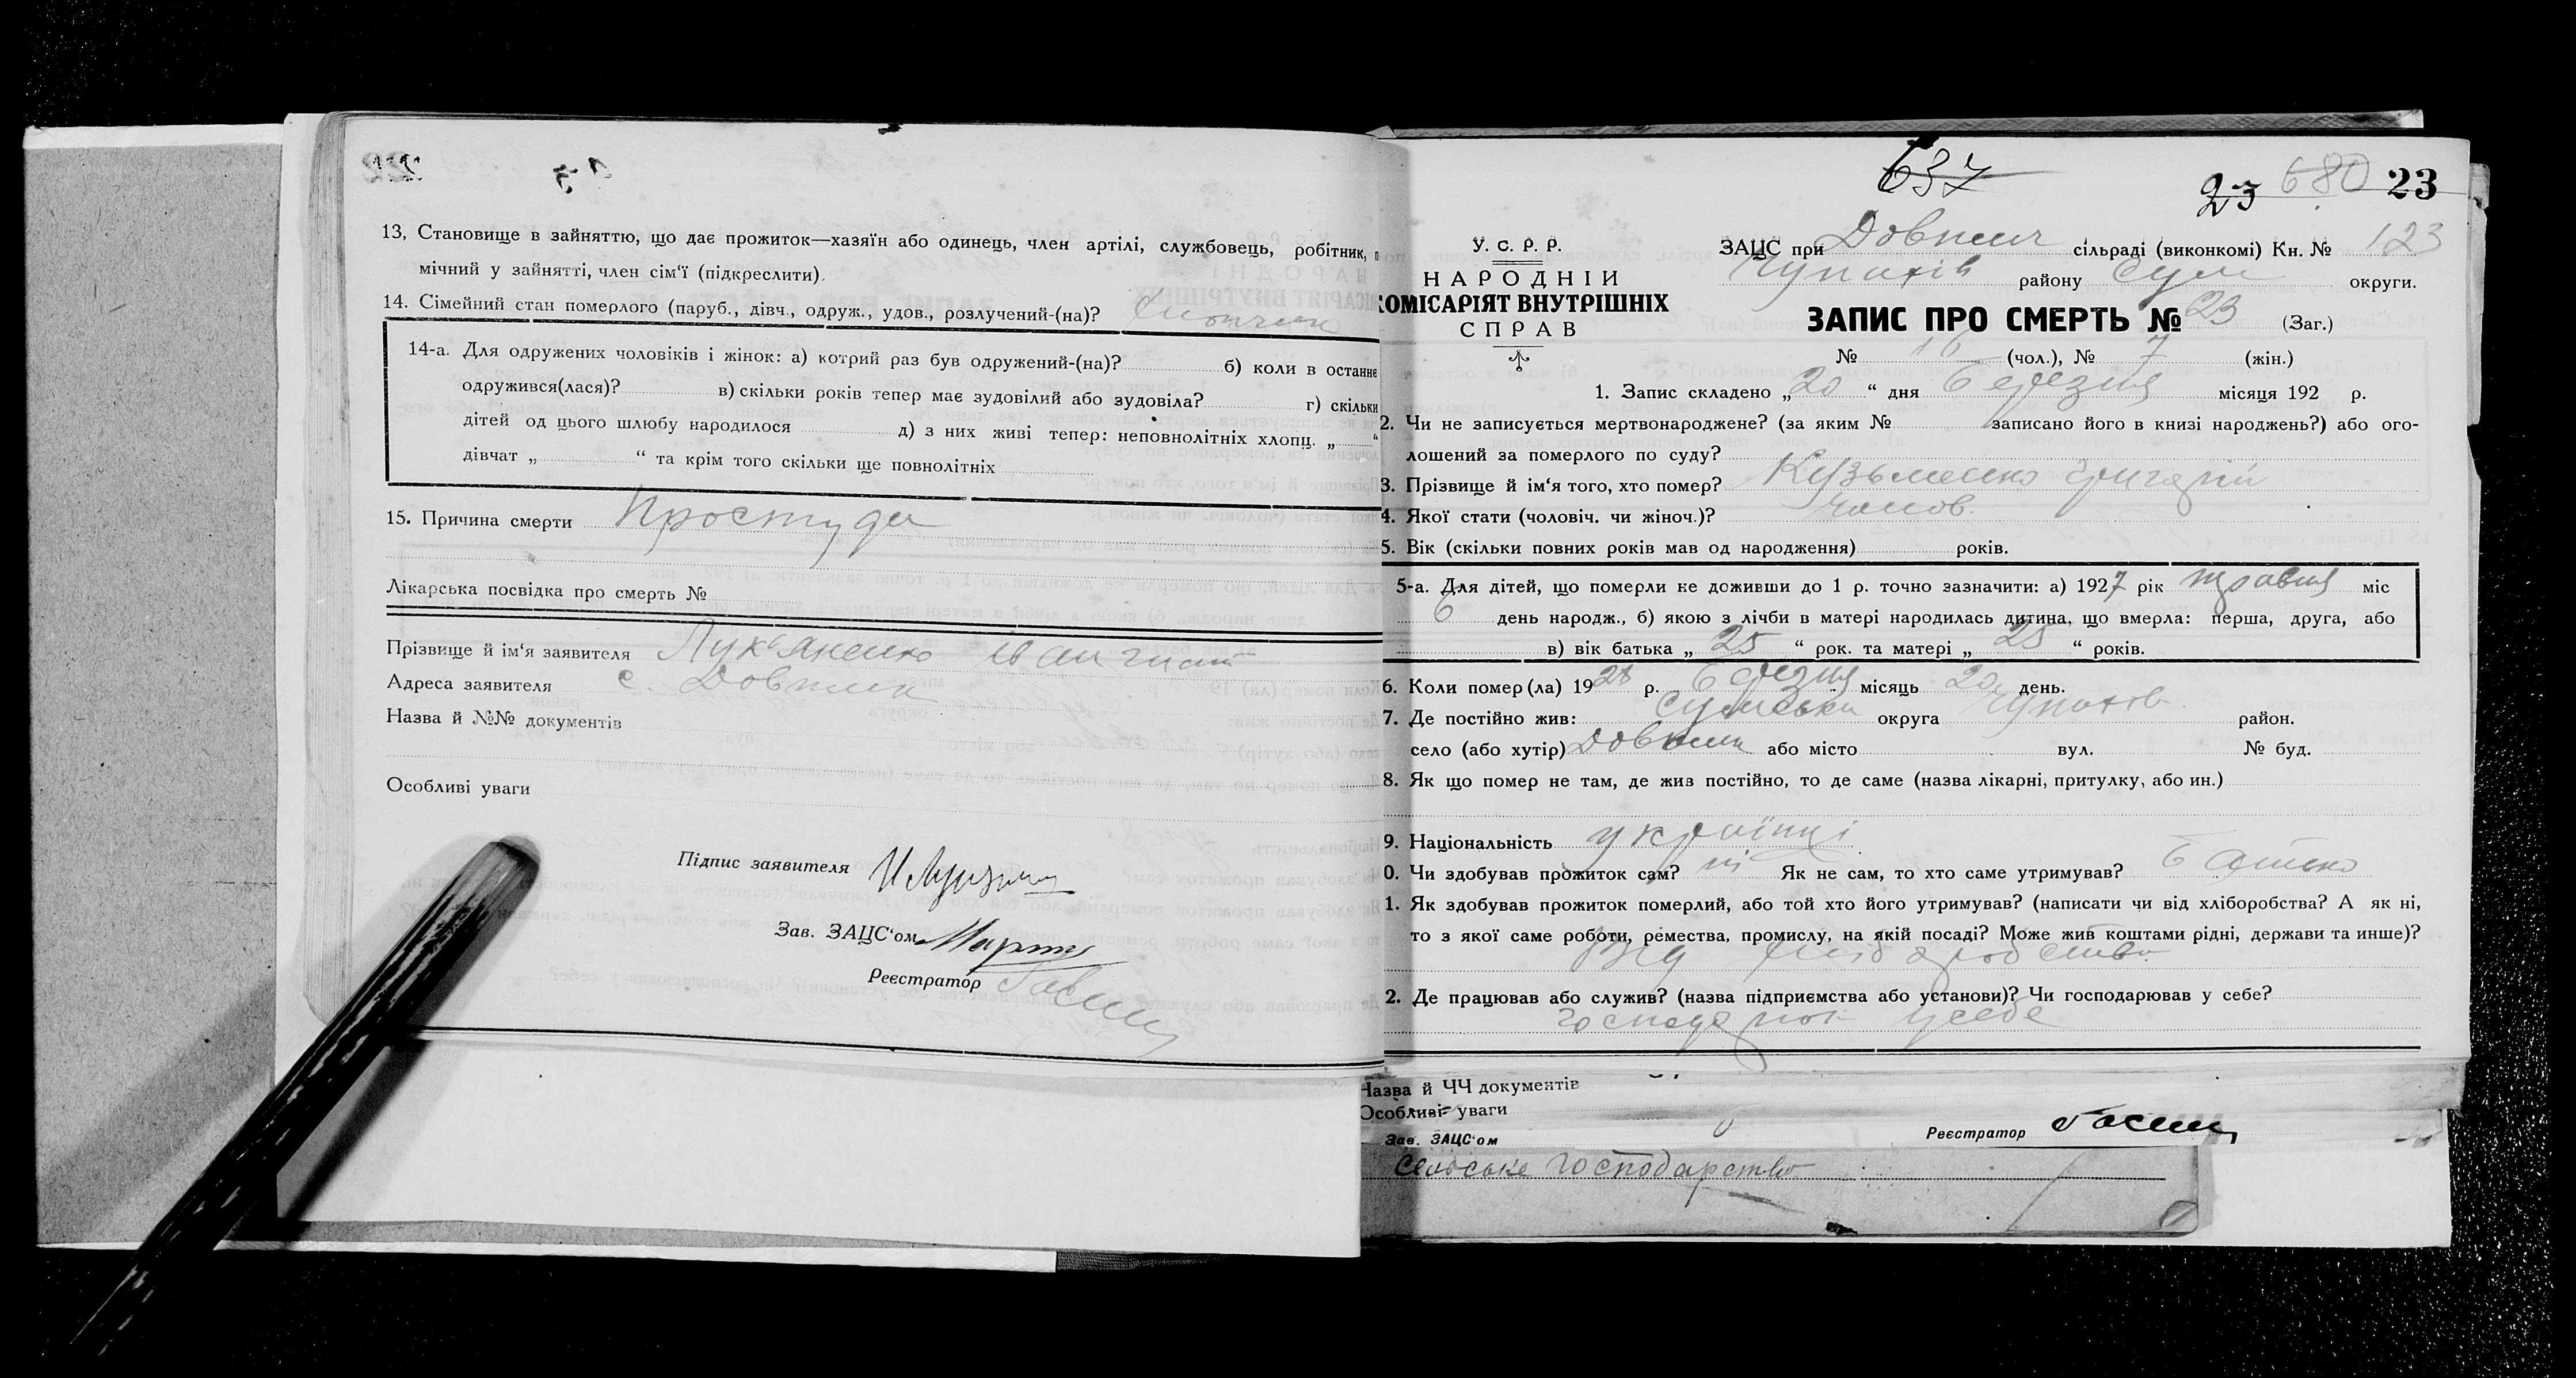 22
13, Становище в зайняттю, що дає прожиток—хазяїн або одинець, член артілі, службовець, робітник,
мічний у зайнятті, член сім'ї (підкреслити).
14. Сімейний стан померлого (паруб., дівч., одруж., удов., розлучений-(на)?
14-а. Для одружених чоловіків і жінок: а) котрий раз був одружений-(на)? б) коли в останнє
одружився(лася)? в) скільки років тепер має зудовілий або зудовіла? г) скільки
дітей од цього шлюбу народилося д) з них живі тепер: неповнолітніх хлопц. „ “
дівчат „ “ та крім того скільки ще повнолітніх
15. Причина смерти Простуда
Лікарська посвідка про смерть №
Прізвище й ім'я заявителя Лукьяненко Іван
Адреса заявителя с. Довжик
Назва й №№ документів
Особливі уваги
Підпис заявителя
Зав. ЗАЦС'ом
Реєстратор
637
23 680 23
У. С. Р. Р.
НАРОДНІЙ
КОМІСАРІЯТ ВНУТРІШНІХ
СПРАВ
ЗАЦС при Довжич сільраді (виконкомі) Кн. № 123
Чупахів району Сум округи.
ЗАПИС ПРО СМЕРТЬ № 23 (Заг.)
№ 16 (чол.), № 7 (жін.)
1. Запис складено „20“ дня березня місяця 192 р.
2. Чи не записується мертвонароджене? (за яким № записано його в книзі народжень?) або ого-
лошений за померлого по суду?
3. Прізвище й ім'я того, хто помер? Кузьменко Григорій
4. Якої стати (чоловіч. чи жіноч.)? чолов.
5. Вік (скільки повних років мав од народження) років.
5-а. Для дітей, що померли не доживши до 1 р. точно зазначити: а) 1927 рік травня міс
6 день народж., б) якою з лічби в матері народилась дитина, що вмерла: перша, друга, або
в) вік батька „25“ рок. та матері „25“ років.
6. Коли помер(ла) 1928 р. березня місяць 20 день.
7. Де постійно жив: Сумська округа Чупахів район.
село (або хутір) Довжик або місто вул. № буд.
8. Як що помер не там, де жив постійно, то де саме (назва лікарні, притулку, або ин.)
9. Національність українці
0. Чи здобував прожиток сам? ні Як не сам, то хто саме утримував? батько
1. Як здобував прожиток померлий, або той хто його утримував? (написати чи від хліборобства? А як ні,
то з якої саме роботи, ремества, промислу, на якій посаді? Може жив коштами рідні, держави та инше)?
від хліборобства
2. Де працював або служив? (назва підприємства або установи)? Чи господарював у себе?
господарює у себе
Назва й ЧЧ документів
Особливі уваги
Зав. ЗАЦС'ом Реєстратор
сельське господарство